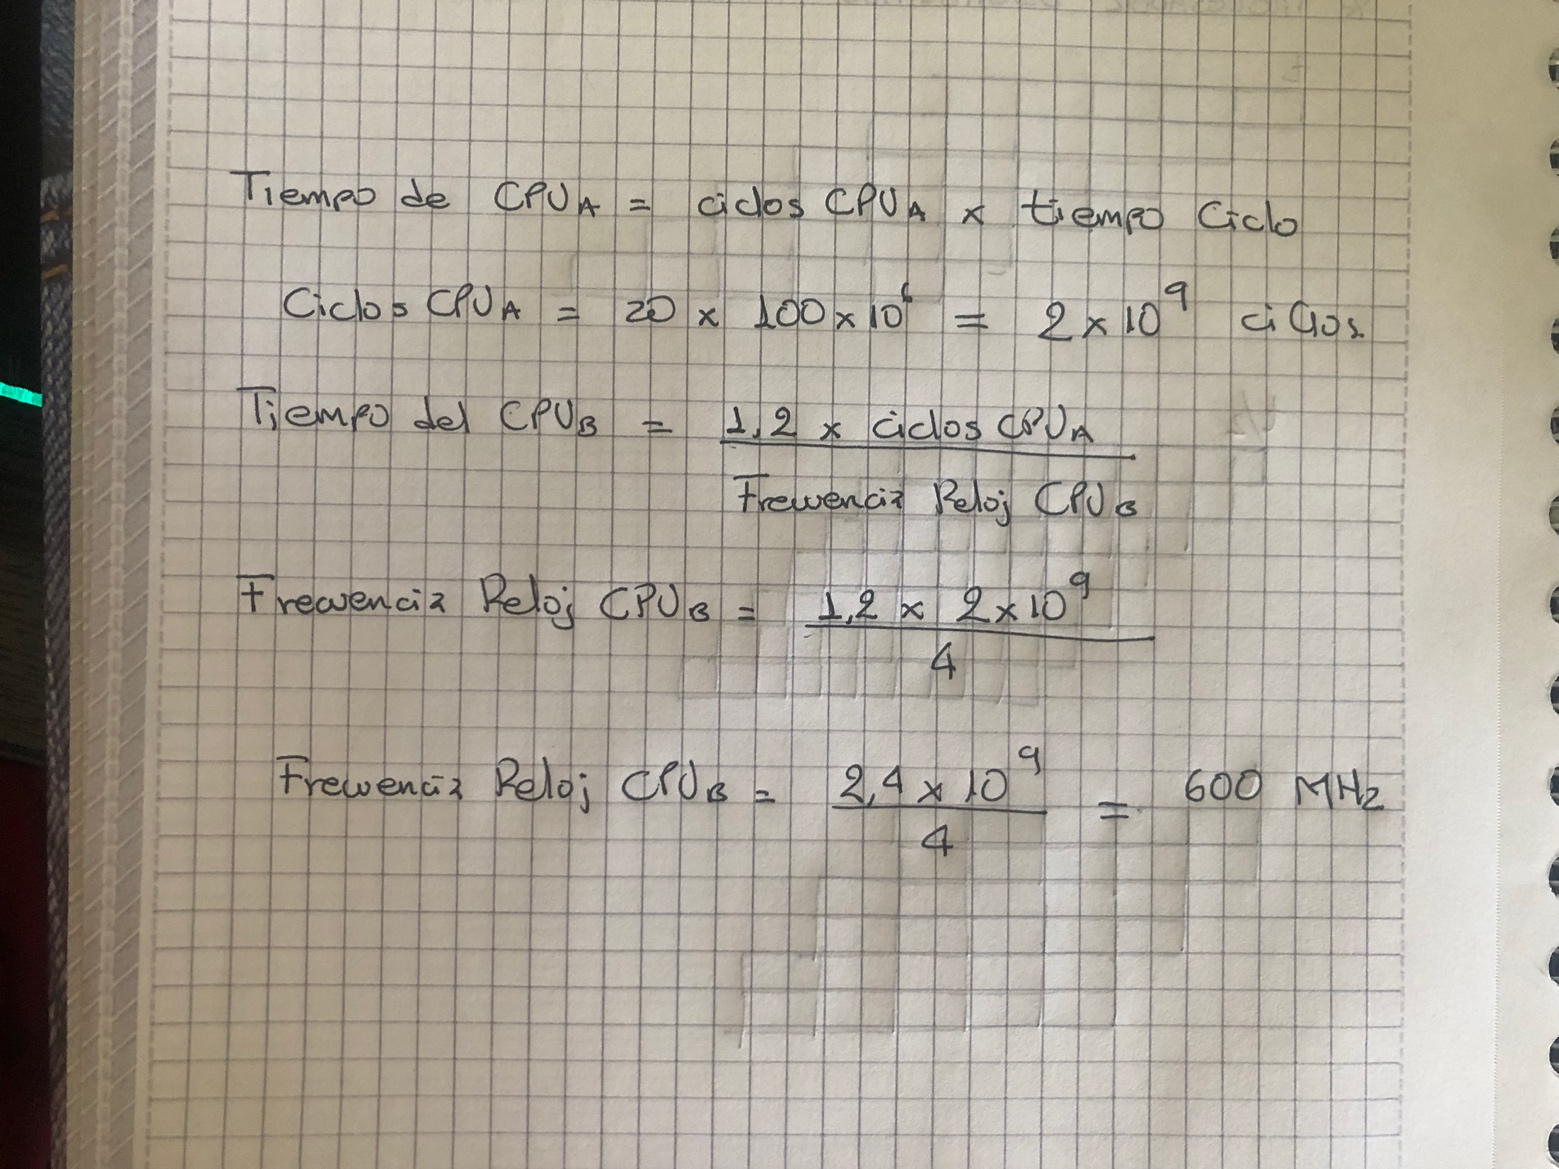 Tiempo de CPU_A = ciclos CPU_A x tiempo Ciclo
Ciclos CPU_A = 20 x 100 x 10^6 = 2 x 10^9 ciclos.
Tiempo del CPU_B = 1,2 x ciclos CPU_A
Frecuencia Reloj CPU_B
Frecuencia Reloj CPU_B = 1,2 x 2 x 10^9
4
Frecuencia Reloj CPU_B = 2,4 x 10^9 = 600 MHz
4